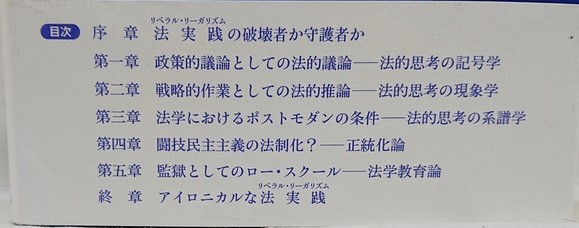 目次 序章 法実践の破壊者か守護者か
リベラル・リーガリズム
第一章 政策的議論としての法的議論──法的思考の記号学
第二章 戦略的作業としての法的推論──法的思考の現象学
第三章 法学におけるポストモダンの条件──法的思考の系譜学
第四章 闘技民主主義の法制化?──正統化論
第五章 監獄としてのロー・スクール──法学教育論
終章 アイロニカルな法実践
リベラル・リーガリズム